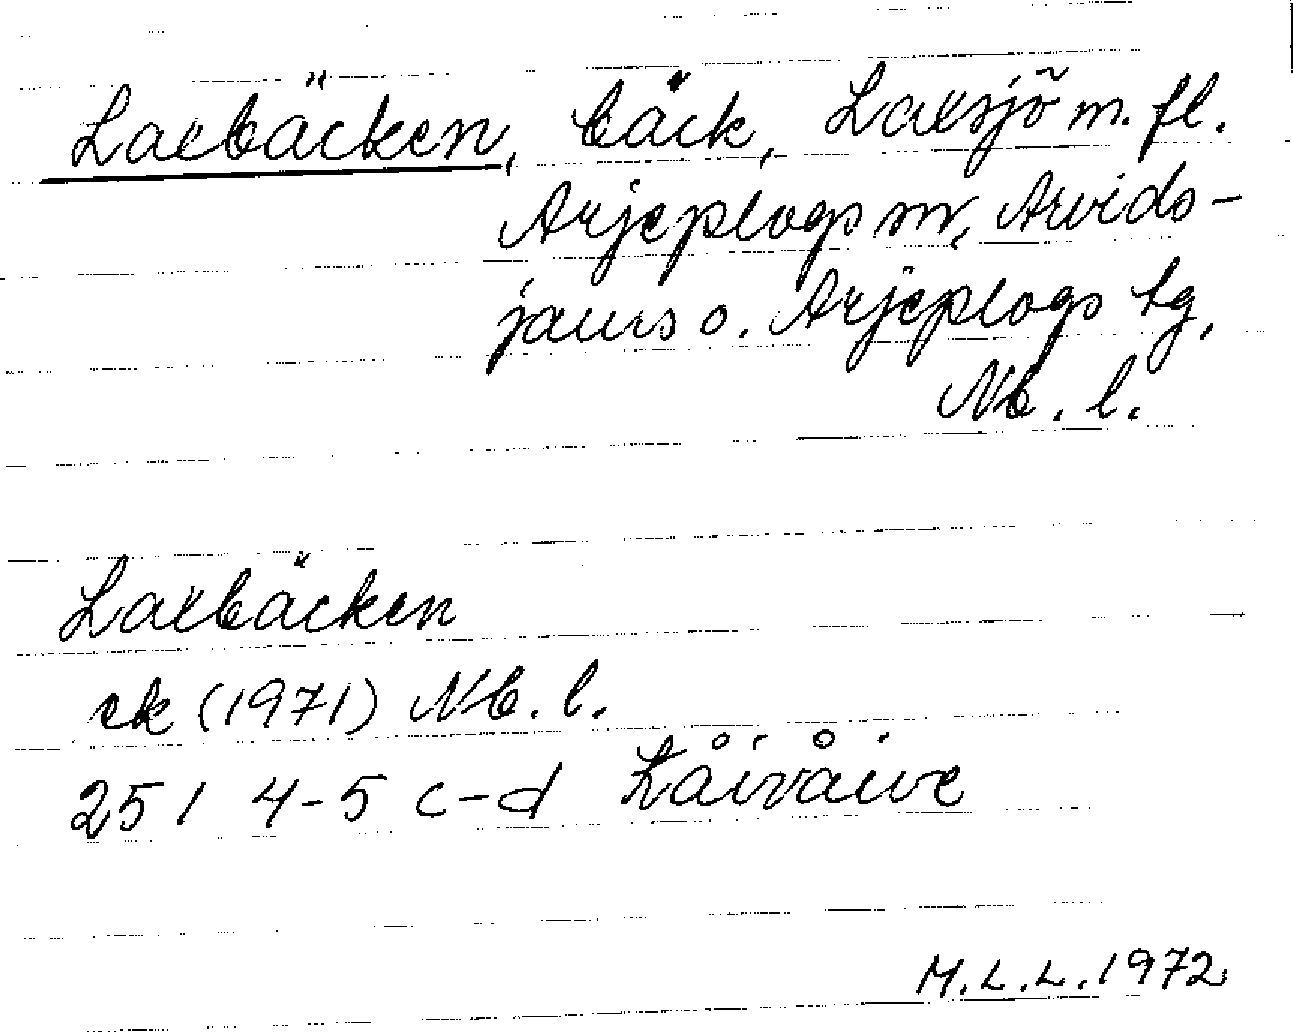 Laxbäcken, bäck, Laxsjö m. fl.
Arjeplogs sn, Arvids-
jaurs o. Arjeplogs tg,
Nb. l.
Laxbäcken
ek (1971) Nb. l.
25 I 4-5 c-d Låivåive
M.L.L. 1972